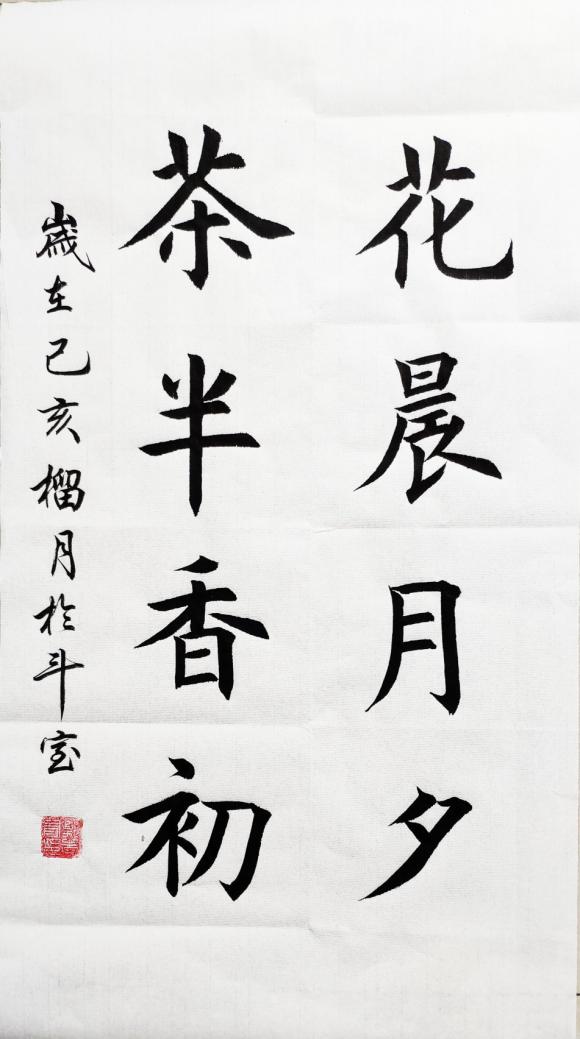 花晨月夕
茶半香初
歲在己亥榴月於斗室